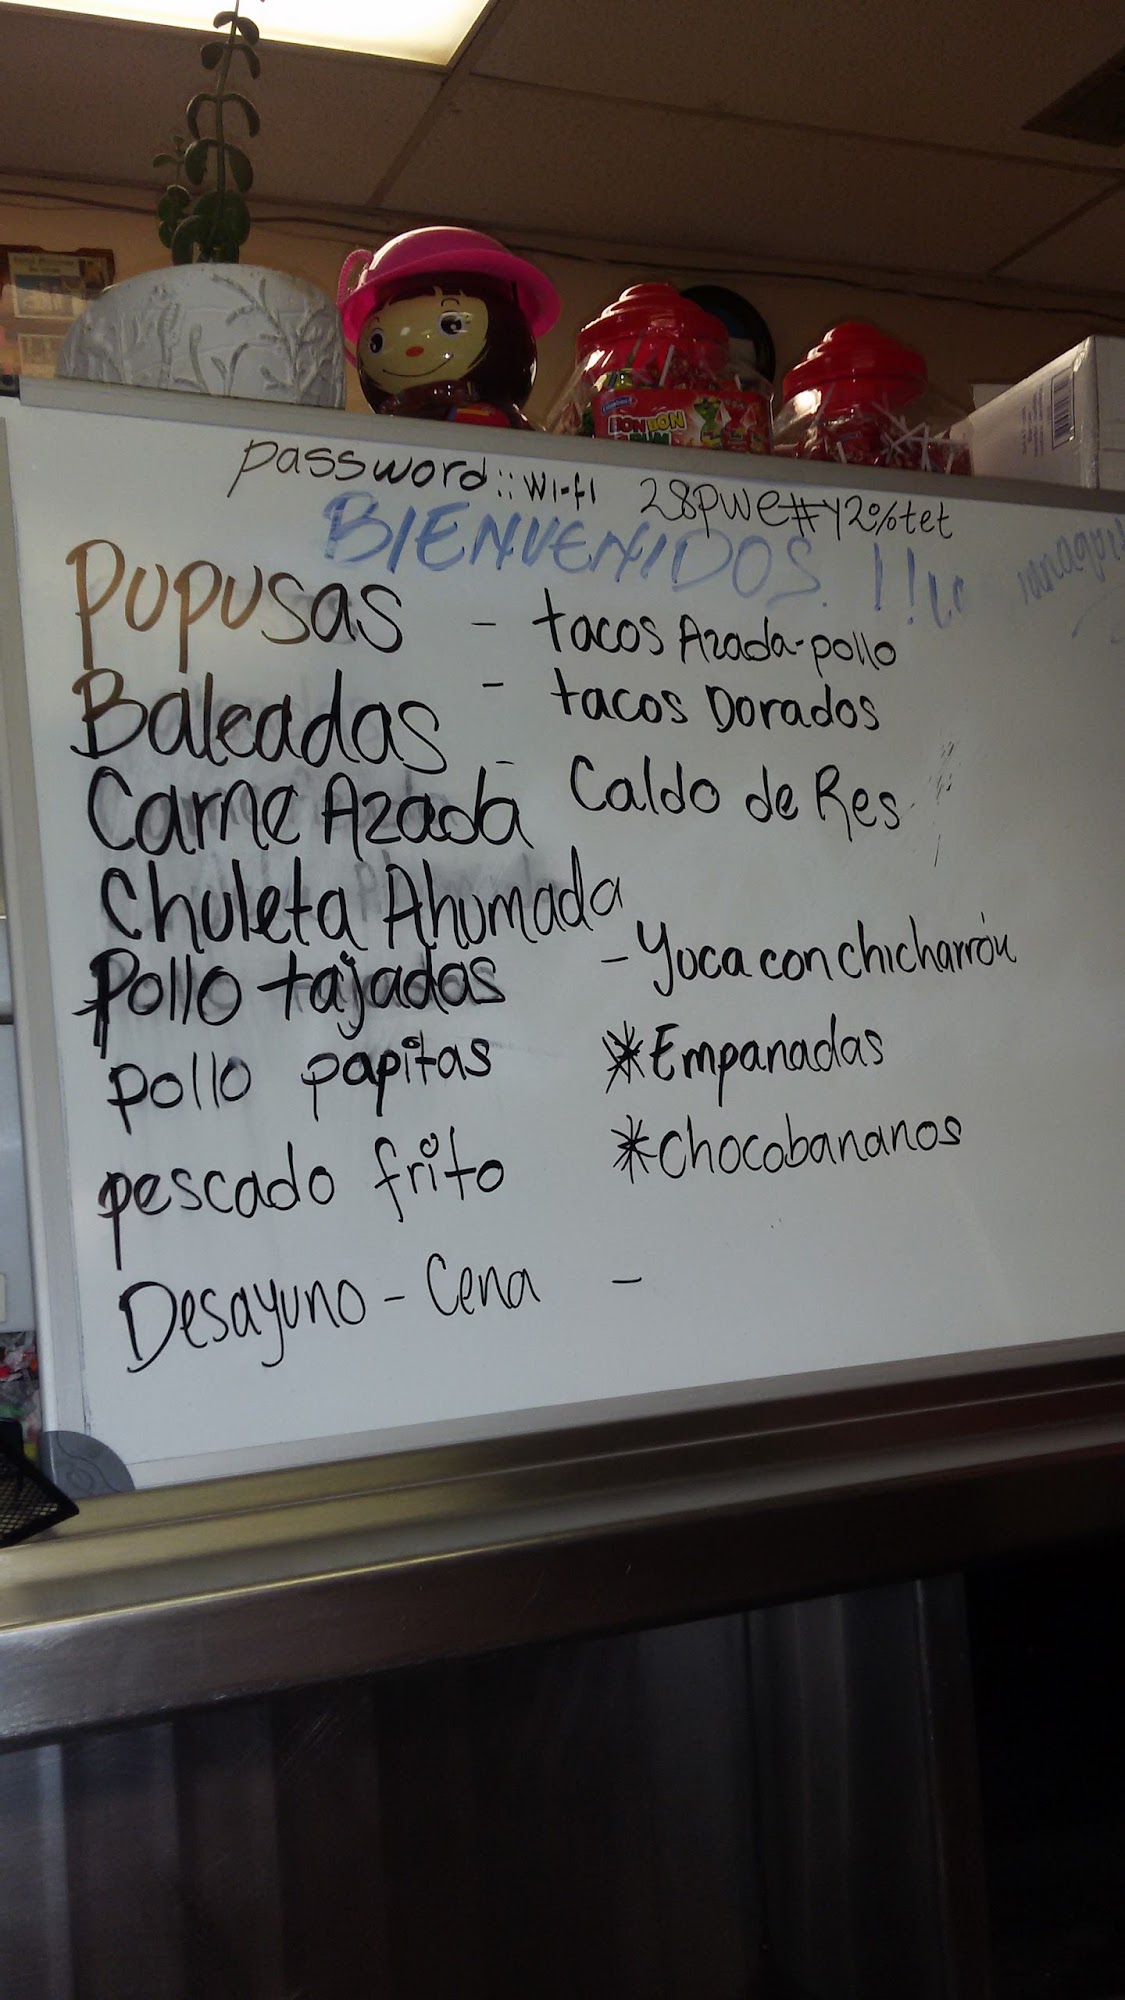 password:: Wi-fi 28pwe#y2%tet
BIENVENIDOS !!
Pupusas
Baleadas
Carne Azada
Chuleta Ahumada
Pollo tajadas
pollo papitas
pescado frito
Desayuno - Cena -
- tacos Azada-pollo
- tacos Dorados
- Caldo de Res
- Yuca con chicharrón
*Empanadas
*Chocobananos
BON BON
BUM